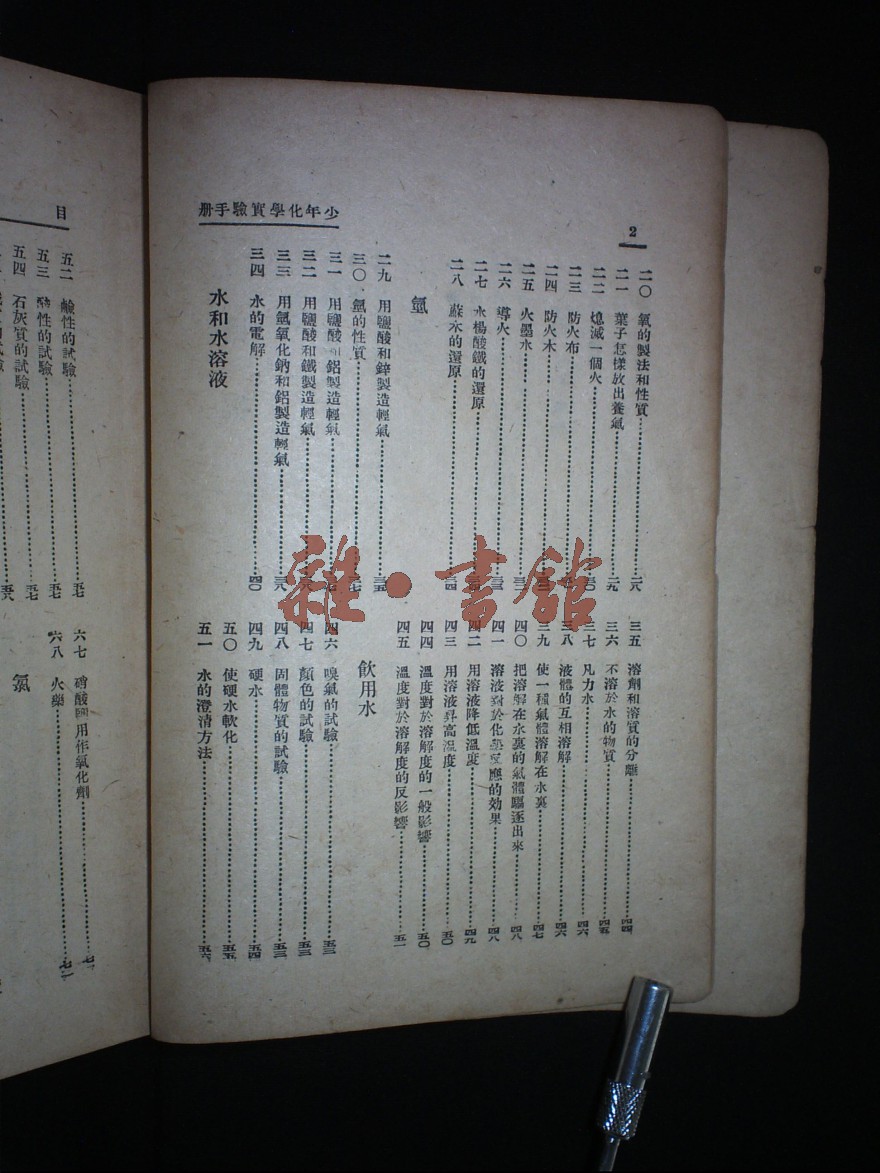 少年化學實驗手册
2
二〇 氧的製法和性質……二八
二一 葉子怎樣放出養氣……二九
二二 熄滅一個火……三〇
二三 防火布……
二四 防火木……
二五 火墨水……
二六 導火……
二七 水楊酸鐵的還原……
二八 蘇木的還原……三四
氫
二九 用鹽酸和鋅製造輕氣……三五
三〇 氫的性質……
三一 用鹽酸和鋁製造輕氣……
三二 用鹽酸和鐵製造輕氣……
三三 用氫氧化鈉和鋁製造輕氣……三八
三四 水的電解……四〇
水和水溶液
三五 溶劑和溶質的分離……四四
三六 不溶於水的物質……四五
三七 凡力水……四六
三八 液體的互相溶解……四六
三九 使一種氣體溶解在水裏……四七
四〇 把溶解在水裏的氣體驅逐出來……四八
四一 溶液對於化學反應的効果……四八
四二 用溶液降低溫度……四九
四三 用溶液昇高溫度……五〇
四四 溫度對於溶解度的一般影響……五〇
四五 溫度對於溶解度的反影響……五一
飲用水
四六 嗅氣的試驗……五三
四七 顏色的試驗……五三
四八 固體物質的試驗……五三
四九 硬水……五四
五〇 使硬水軟化……五五
五一 水的澄清方法……五六
目
五二 鹼性的試驗……五七
五三 酸性的試驗……五七
五四 石灰質的試驗……五七
六七 硝酸鉀用作氧化劑……七一
六八 火藥……七二
氯
雜·書館